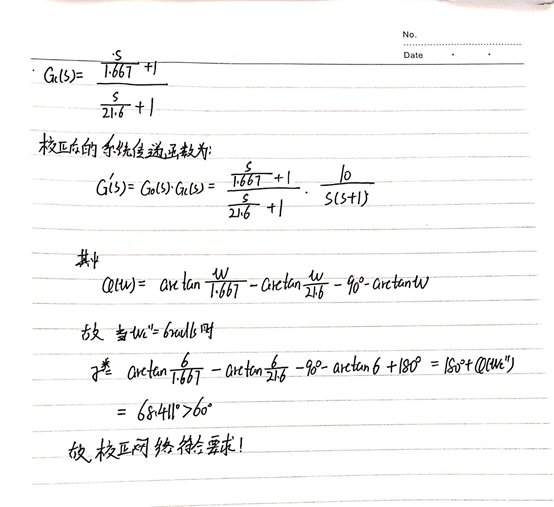 No.
Date
Gc(s)= (s/1.667 +1)/(s/21.6 +1)
校正后的系统传递函数为:
G'(s)= G₀(s)·Gc(s)= (s/1.667 +1)/(s/21.6 +1) · 10/s(s+1)
其中
φ(w)= arctan w/1.667 -arctan w/21.6 -90°-arctanw
故 当wc''=6rad/s时
γ*= arctan 6/1.667 -arctan 6/21.6 -90°-arctan6+180° =180°+φ(wc'')
= 68.411°>60°
故校正网络符合要求!